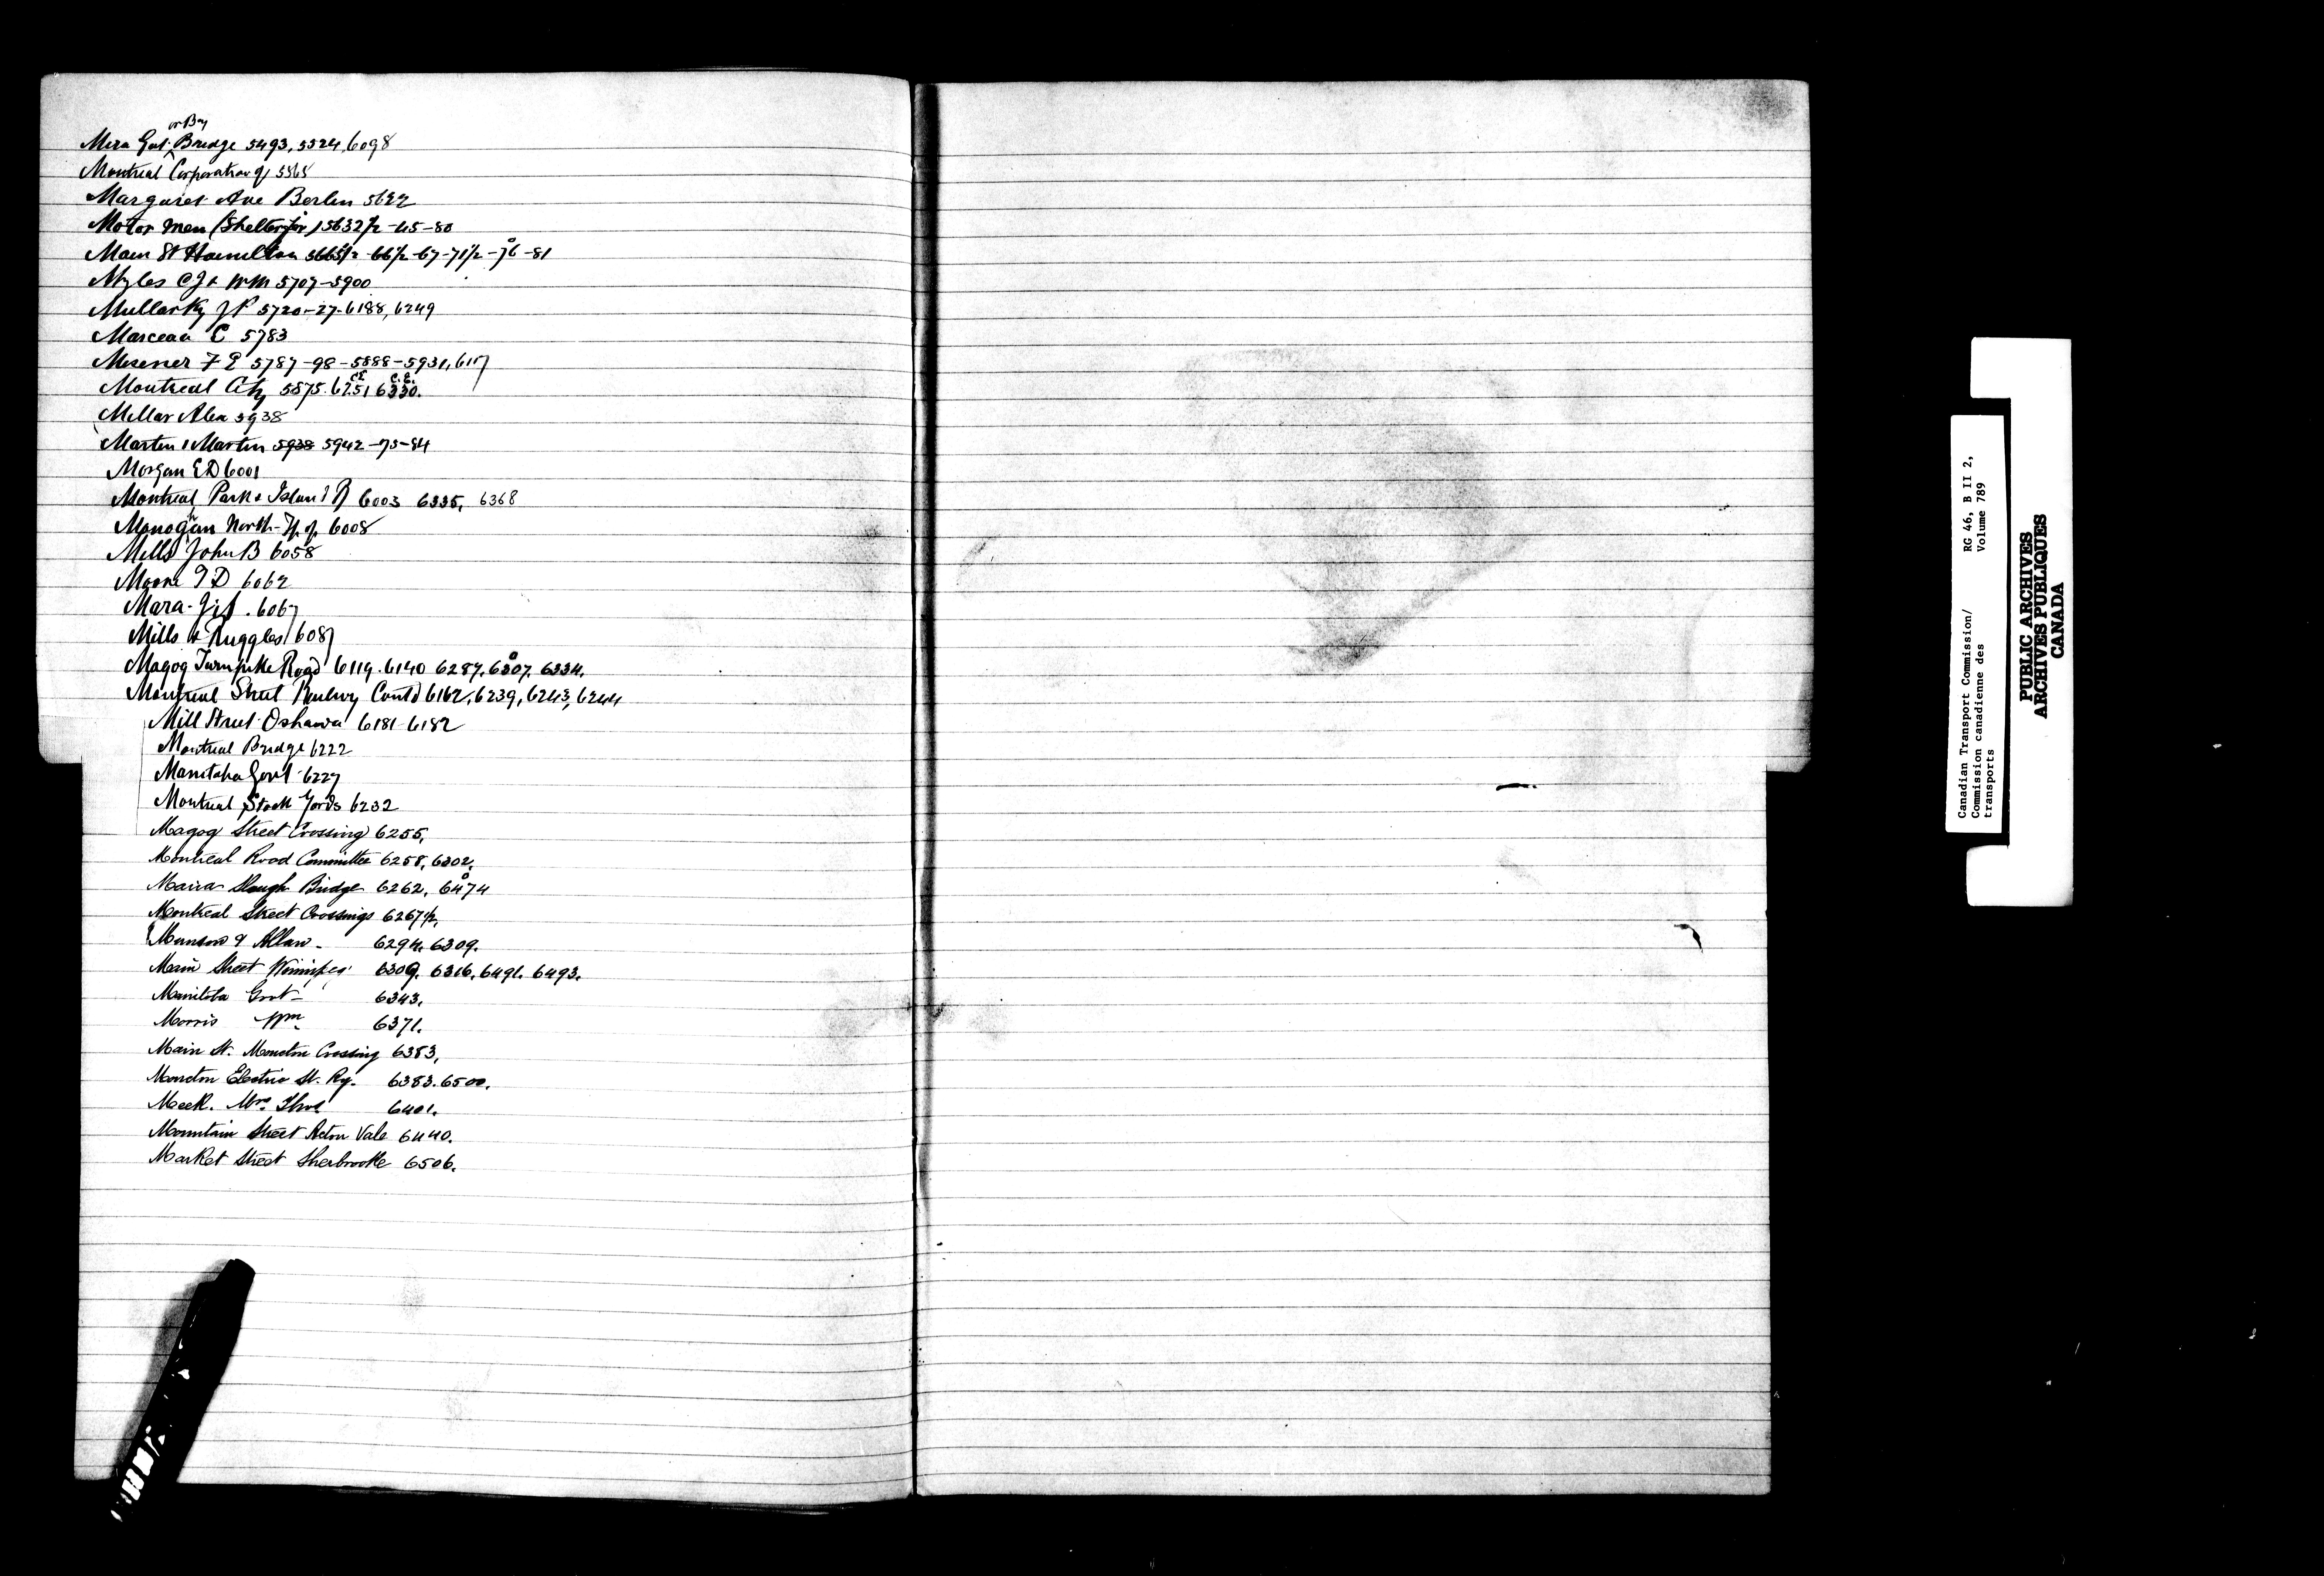 or Bay
Mira Gut Bridge 5493, 5524, 6098
Montreal Corporation of 5565
Margaret Ave Berlin 5622
Motor Men (Shelter for) 5632½-45-80
Main St Hamilton 5665½-66½-67-71½-76-81
Myles C J & Wm 5707-5900
Mullarky J P 5720-27-6188, 6249
Marceau E 5783
Messner F E 5787-98-5888-5931, 6117
Montreal City 5875. 6251 C.E. 6330. C.E.
Millar Alex 5938
Martin & Martin 5938 5942-75-84
Morgan E D 6001
Montreal Park & Island Ry 6003 6335, 6368
Monoghan North-Tp of 6008
Mills John B 6058
Moore T D 6062
Mara 6067
Mills & Ruggles 6087
Magog Turnpike Road 6119. 6140 6287. 6307. 6334.
Montreal Street Railway Contd 6162, 6239, 6243, 6244
Mill Street Oshawa 6181-6182
Montreal Bridge 6222
Manitoba Govt 6227
Montreal Stock Yards 6232
Magog Street Crossing 6255,
Montreal Road Committee 6258, 6302,
Maira Slough Bridge 6262, 6474
Montreal Street Crossings 6267½,
Munson & Allan - 6294. 6309.
Main Street Winnipeg 6309. 6316. 6491. 6493.
Manitoba Govt - 6343.
Morris Wm 6371.
Main St. Moncton Crossing 6383,
Moncton Electric St. Ry. 6383. 6500.
Meek. Mrs. Thos 6401.
Mountain Street Acton Vale 6440.
Market Street Sherbrooke 6506.
Canadian Transport Commission/ RG 46, B II 2,
Commission canadienne des Volume 789
transports
PUBLIC ARCHIVES
ARCHIVES PUBLIQUES
CANADA